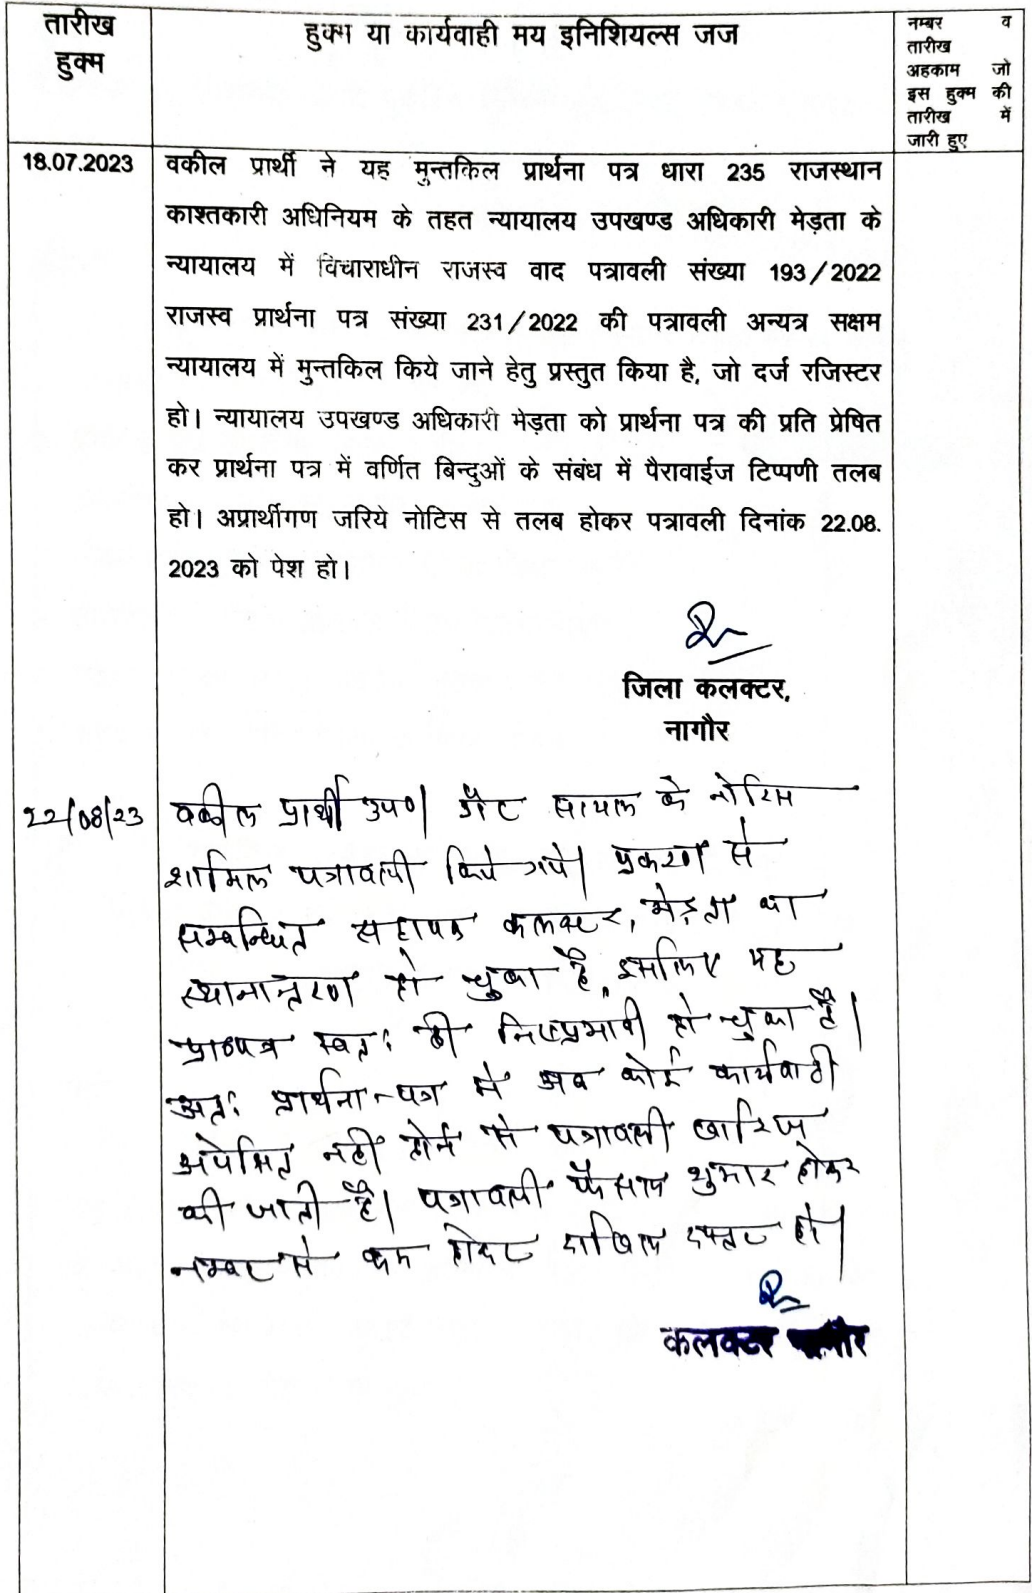 तारीख
हुक्म
हुक्म या कार्यवाही मय इनिशियल्स जज
नम्बर व
तारीख
अहकाम जो
इस हुक्म की
तारीख में
जारी हुए
18.07.2023
वकील प्रार्थी ने यह मुन्तकिल प्रार्थना पत्र धारा 235 राजस्थान
काश्तकारी अधिनियम के तहत न्यायालय उपखण्ड अधिकारी मेड़ता के
न्यायालय में विचाराधीन राजस्व वाद पत्रावली संख्या 193/2022
राजस्व प्रार्थना पत्र संख्या 231/2022 की पत्रावली अन्यत्र सक्षम
न्यायालय में मुन्तकिल किये जाने हेतु प्रस्तुत किया है, जो दर्ज रजिस्टर
हो। न्यायालय उपखण्ड अधिकारी मेड़ता को प्रार्थना पत्र की प्रति प्रेषित
कर प्रार्थना पत्र में वर्णित बिन्दुओं के संबंध में पैरावाईज टिप्पणी तलब
हो। अप्रार्थीगण जरिये नोटिस से तलब होकर पत्रावली दिनांक 22.08.
2023 को पेश हो।
जिला कलक्टर,
नागौर
22/08/23
वकील प्रार्थी उप०। गैर सायल के नोटिस
शामिल पत्रावली किये गये। प्रकरण से
सम्बन्धित सहायक कलक्टर, मेड़ता का
स्थानान्तरण हो चुका है, इसलिए यह
प्रा०पत्र स्वत: ही निष्प्रभावी हो चुका है।
अत: प्रार्थना-पत्र में अब कोई कार्यवाही
अपेक्षित नहीं होने से पत्रावली खारिज
की जाती है। पत्रावली फैसल शुमार होकर
नम्बर से कम होकर दाखिल दफ्तर हो।
कलक्टर